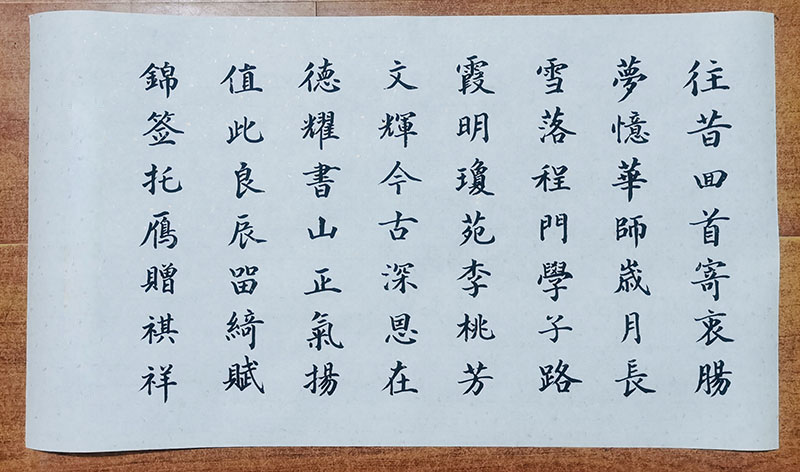 往昔回首寄衷腸
夢憶華師歲月長
雪落程門學子路
霞明瓊苑李桃芳
文輝今古深恩在
德耀書山正氣揚
值此良辰留綺賦
錦签托鴈贈祺祥